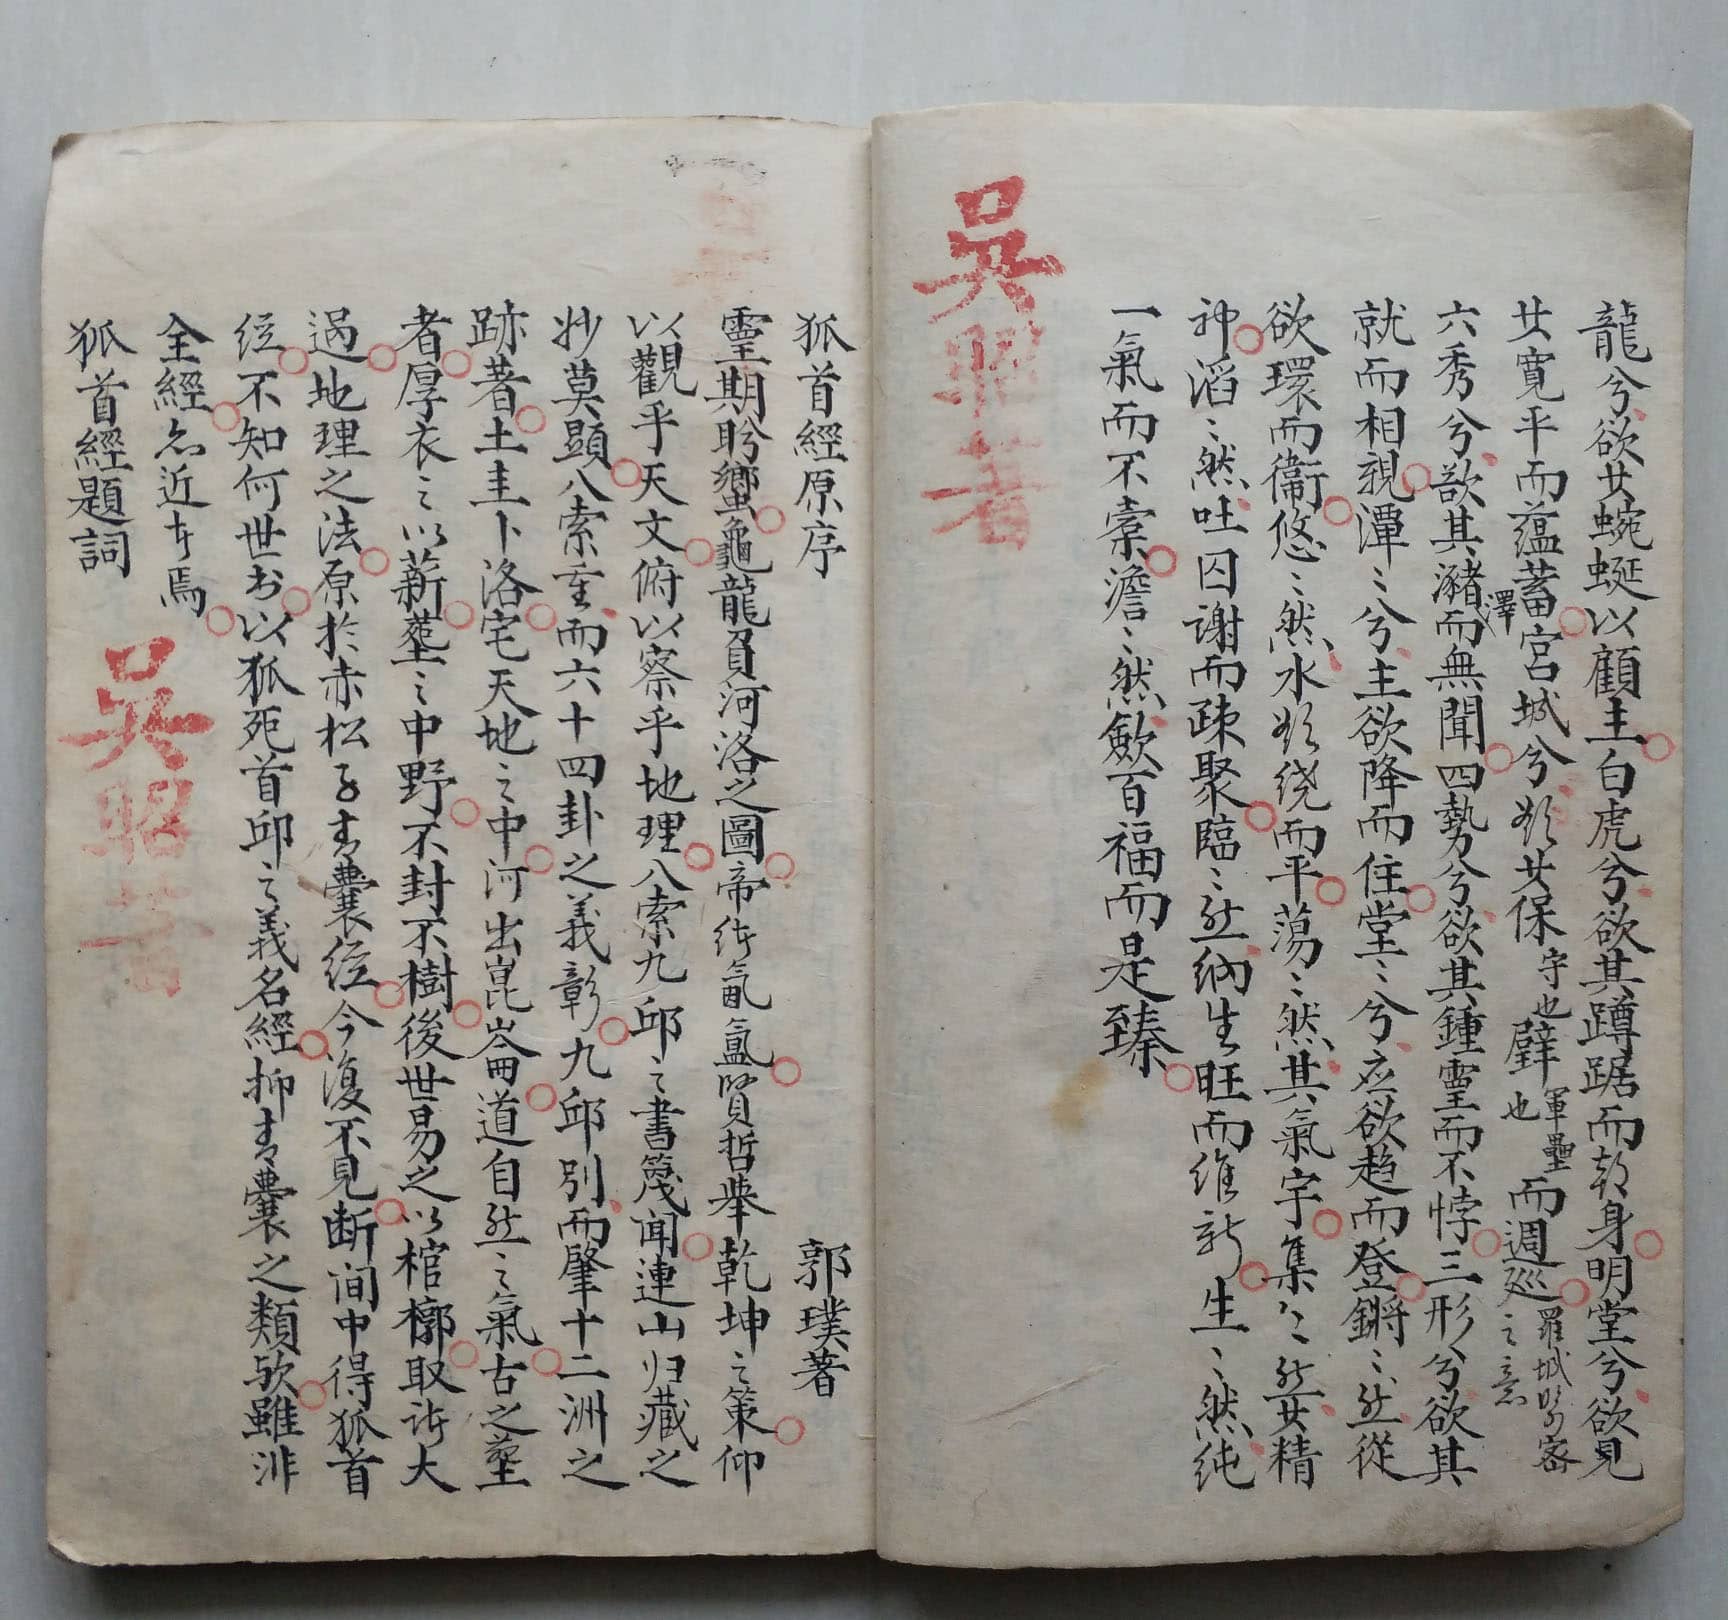 龍兮欲廿蜿蜒以顧主白虎兮欲其蹲踞而身明堂兮欲見
廿寬平而蘊蓄宮城兮欲廿保守也壁軍壘也而週廵羅城緊密之意
六秀兮欲其瀦澤而無聞四勢兮欲其鍾霊而不悖三形兮欲其
就而相親潭〻兮主欲降而住堂〻兮应欲趋而登鏘〻然從
欲環而衞悠〻然水欲绕而平蕩〻然其氣宇集〻然廿精
神滔〻然吐囚谢而疎聚臨〻然納生旺而維新生〻然纯
一氣而不索澹〻然歛百福而是臻
吳昭著
狐首經原序 郭璞著
霊期盻蠁龜龍負河洛之圖帝結氤氳賢哲举乾坤之策仰
以觀乎天文俯以察乎地理八索九邱之書篾闻連山归藏之
妙莫顯八索重而六十四卦之義彰九邱别而肇十二洲之
跡著土圭卜洛宅天地之中河出崑崙道自然之氣古之塟
者厚衣之以薪塟之中野不封不樹後世易之以棺槨取诸大
過地理之法原於赤松子青囊经今復不見断间中得狐首
经不知何世书以狐死首邱之義名經抑青囊之類欤雖非
全經亦近古焉
狐首經題詞
吳昭著